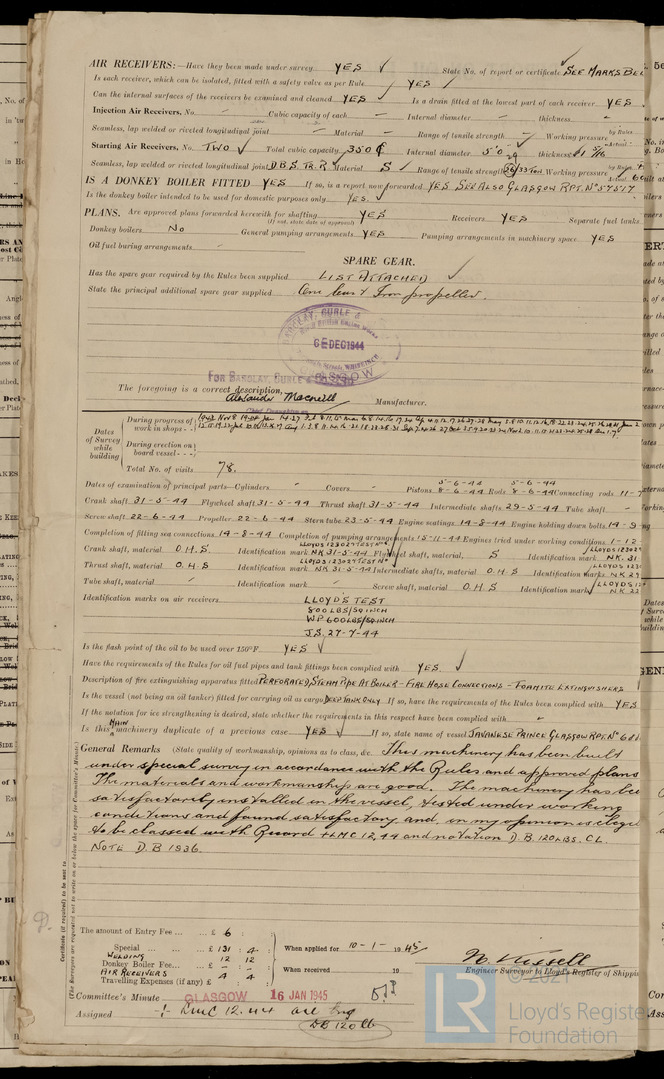 AIR RECEIVERS:—Have they been made under survey YES ✓ State No. of report or certificate SEE MARKS BEL
Is each receiver, which can be isolated, fitted with a safety valve as per Rule YES ✓
Can the internal surfaces of the receivers be examined and cleaned YES ✓ Is a drain fitted at the lowest part of each receiver YES
Injection Air Receivers, No. - Cubic capacity of each - Internal diameter - thickness -
Seamless, lap welded or riveted longitudinal joint - Material - Range of tensile strength - Working pressure by Rules
Actual
Starting Air Receivers, No. TWO ✓ Total cubic capacity 350 Internal diameter 5'0" thickness 1 5/16
Seamless, lap welded or riveted longitudinal joint D.B.S. TR.R. Material S ✓ Range of tensile strength Working pressure by Rules
Actual 60
IS A DONKEY BOILER FITTED YES If so, is a report now forwarded YES SEE ALSO GLASGOW RPT. No 57517
Is the donkey boiler intended to be used for domestic purposes only YES.
PLANS. Are approved plans forwarded herewith for shafting YES Receivers YES Separate fuel tanks
(If not, state date of approval)
Donkey boilers No General pumping arrangements YES Pumping arrangements in machinery space YES
Oil fuel burning arrangements -
SPARE GEAR.
Has the spare gear required by the Rules been supplied LIST ATTACHED ✓
State the principal additional spare gear supplied One Cast Iron propeller.
BARCLAY, CURLE &
6 DEC 1944
GLASGOW
FOR BARCLAY, CURLE &
The foregoing is a correct description,
Alexander Macneill Manufacturer.
Dates of Survey while building
During progress of work in shops - -
During erection on board vessel - - -
Total No. of visits 78.
Dates of examination of principal parts—Cylinders - Covers - Pistons 5-6-44 8-6-44 Rods 5-6-44 8-6-44 Connecting rods 11-7
Crank shaft 31-5-44 Flywheel shaft 31-5-44 Thrust shaft 31-5-44 Intermediate shafts 29-5-44 Tube shaft -
Screw shaft 22-6-44 Propeller 22-6-44 Stern tube 23-5-44 Engine seatings 14-8-44 Engine holding down bolts 14-9
Completion of fitting sea connections 14-8-44 Completion of pumping arrangements 15-11-44 Engines tried under working conditions 1-12-
Crank shaft, material O.H.S. Identification mark LLOYDS 12302 TEST No NK 31-5-44 Flywheel shaft, material S Identification mark LLOYDS 1230 NK 31
Thrust shaft, material O.H.S Identification mark LLOYDS 12302 TEST No NK 31-5-44 Intermediate shafts, material O.H.S Identification marks LLOYDS 123 NK 29
Tube shaft, material - Identification mark - Screw shaft, material O.H.S Identification mark LLOYDS 12 NK 22
Identification marks on air receivers LLOYDS TEST
800 LBS/SQ.INCH
WP 600 LBS/SQ.INCH
J.S. 27-7-44
Is the flash point of the oil to be used over 150°F. YES ✓
Have the requirements of the Rules for oil fuel pipes and tank fittings been complied with YES ✓
Description of fire extinguishing apparatus fitted PERFORATED STEAM PIPE AT BOILER - FIRE HOSE CONNECTIONS - FOAMITE EXTINGUISHERS
Is the vessel (not being an oil tanker) fitted for carrying oil as cargo DEEP TANK ONLY If so, have the requirements of the Rules been complied with YES
If the notation for ice strengthening is desired, state whether the requirements in this respect have been complied with -
Is this MAIN machinery duplicate of a previous case YES If so, state name of vessel JAVANESE PRINCE GLASGOW RPT. No 68
General Remarks (State quality of workmanship, opinions as to class, &c. This machinery has been built
under special survey in accordance with the Rules and approved plans
The materials and workmanship are good. The machinery has be
satisfactorily installed in the vessel, tested under working
conditions and found satisfactory and in my opinion is eligi
to be classed with Record +LMC 12,44 and notation D.B. 120 LBS. CL.
NOTE D.B 1936.
Certificate (if required) to be sent to
(The Surveyors are requested not to write on or below the space for Committee's Minute.)
The amount of Entry Fee ... £ 6
Special ... £ 131 : 4
WELDING 12 12
Donkey Boiler Fee... £ - : -
AIR RECEIVERS 4 4
Travelling Expenses (if any) £
When applied for 10-1- 1945
When received 19
N. Kissell
Engineer Surveyor to Lloyd's Register of Shippin
Committee's Minute GLASGOW 16 JAN 1945
Assigned + LMC 12.44 Oil Eng
DB 120 lb
© 2021
LR
Lloyd's Registe
Foundation